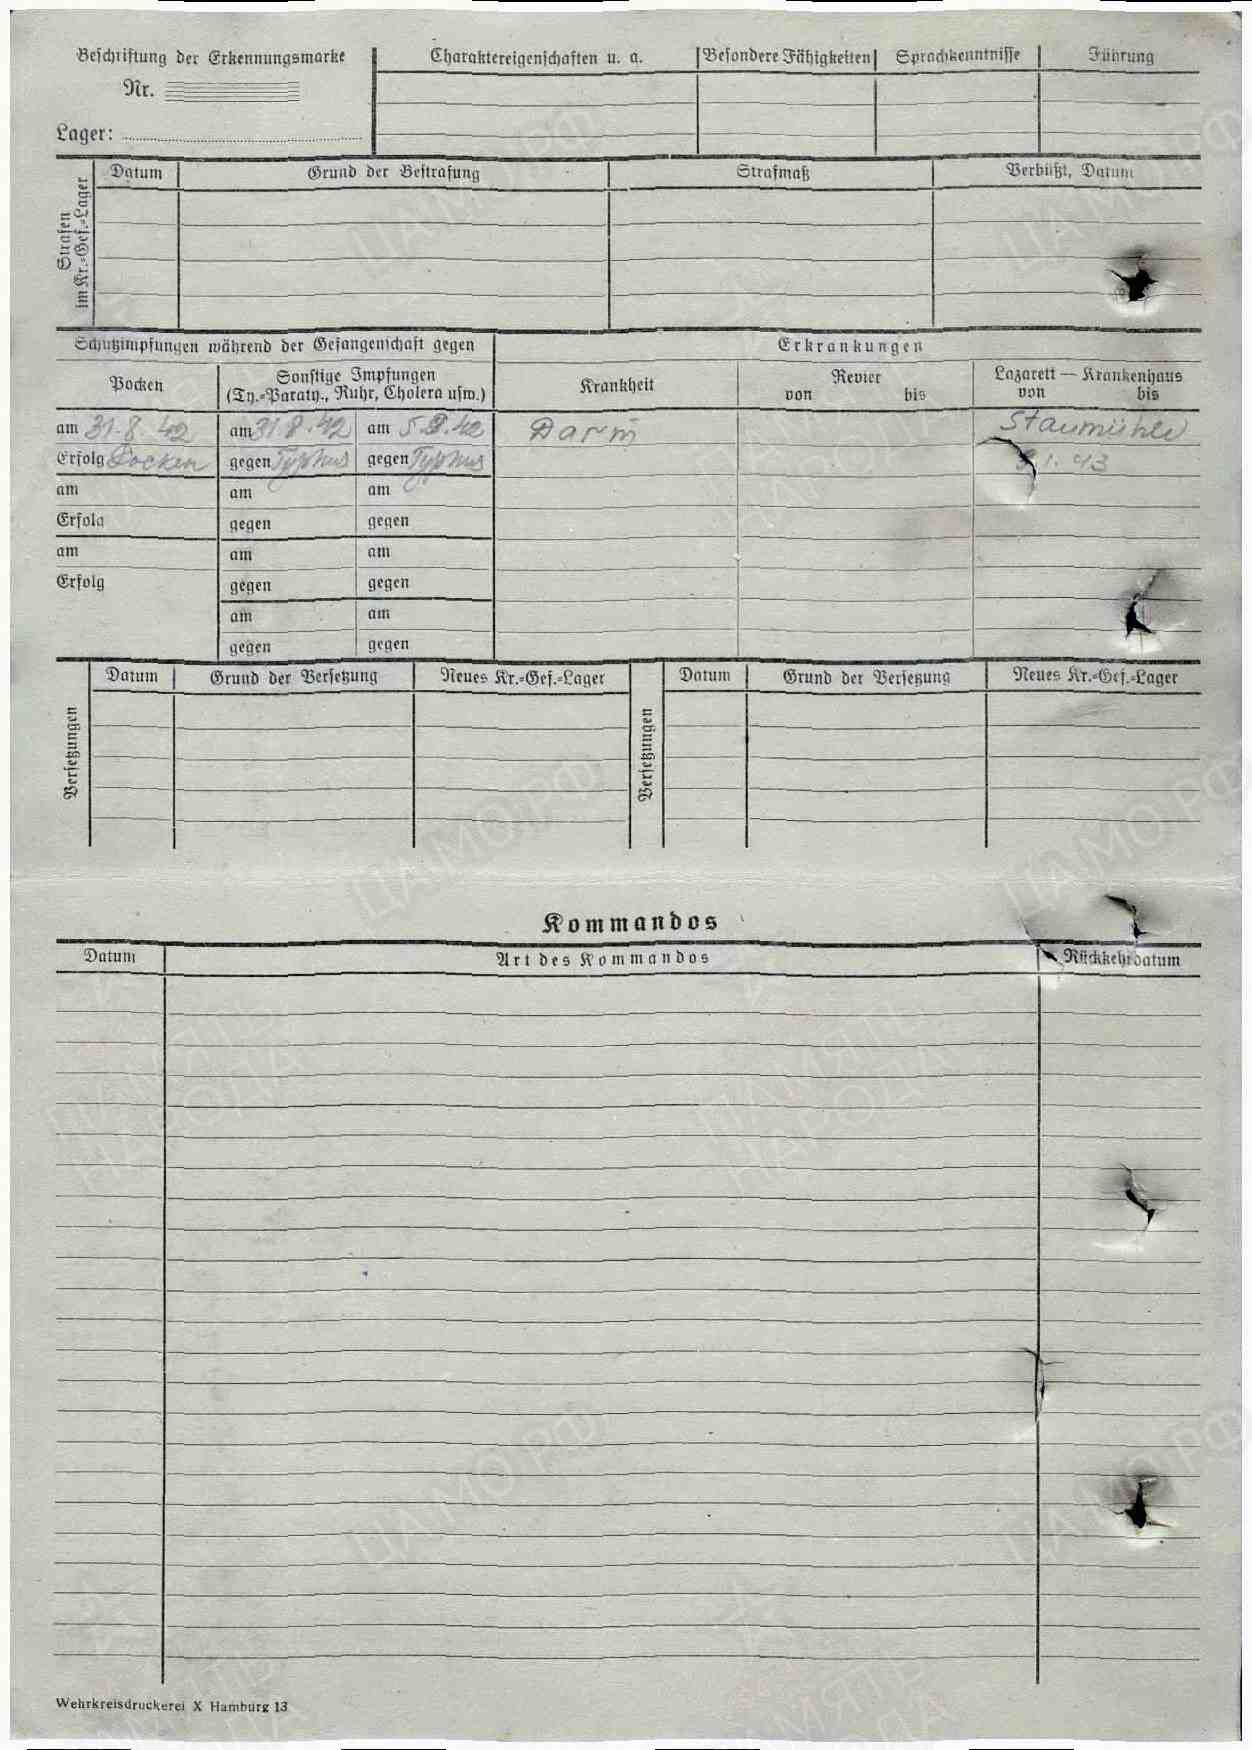 Beschriftung der Erkennungsmarke
Nr.
Lager:
Charaktereigenschaften u. a.
Besondere Fähigkeiten
Sprachkenntnisse
Führung
Strafen
im Kr.=Gef.=Lager
Datum
Grund der Bestrafung
Strafmaß
Verbüßt, Datum
Schutzimpfungen während der Gefangenschaft gegen
Erkrankungen
Pocken
Sonstige Impfungen
(Ty.=Paraty., Ruhr, Cholera usw.)
Krankheit
Revier
von bis
Lazarett — Krankenhaus
von bis
am 31.8.42 am 31.8.42 am 5.9.42 Darm Staumühle
Erfolg Pocken gegen Typhus gegen Typhus 1. 43
am am am
Erfolg gegen gegen
am am am
Erfolg gegen gegen
am am
gegen gegen
Versetzungen
Datum
Grund der Versetzung
Neues Kr.=Gef.=Lager
Versetzungen
Datum
Grund der Versetzung
Neues Kr.=Gef.=Lager
Kommandos
Datum
Art des Kommandos
Rückkehrdatum
Wehrkreisdruckerei X Hamburg 13
ЦАМО.РФ
ПАМЯТЬ
НАРОДА